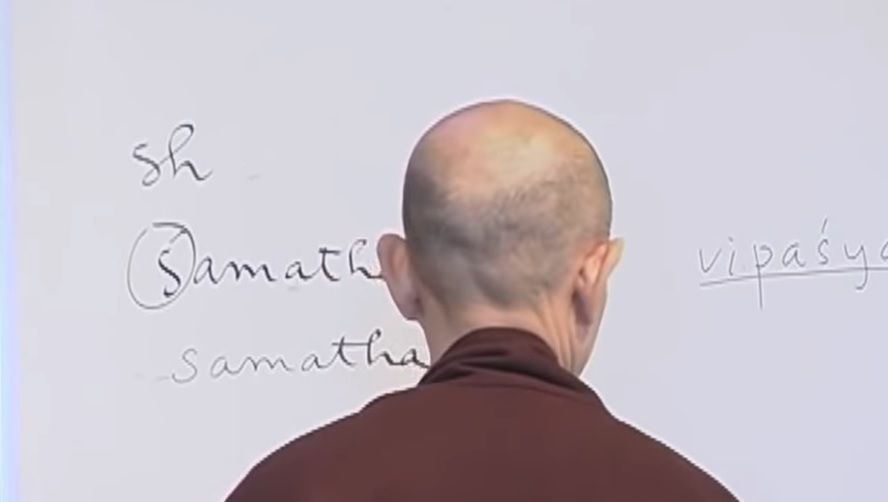 sh
śamath
samatha
vipaśya